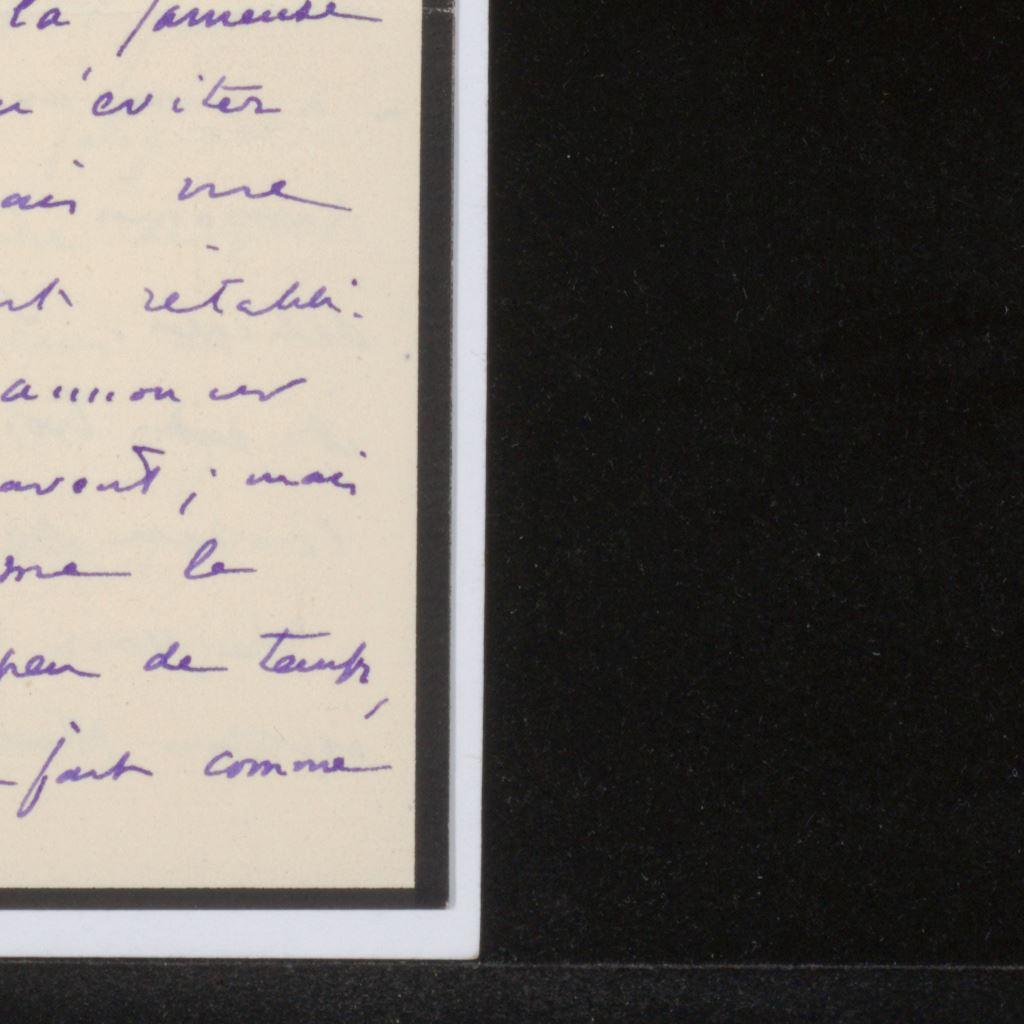 la fameuse
éviter
me
rétabli.
annoncer
avant ; mais
me le
peu de temps,
fait comme